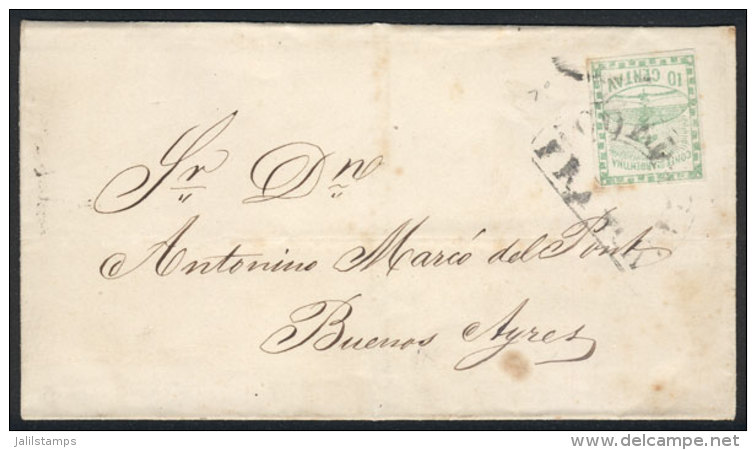 10 CENTAV
CONFON ARGENTINA
FRANCA
Sr. Dn
Antonino Marcó del Pont
Buenos Ayres
jalilstamps
www.delcampe.net